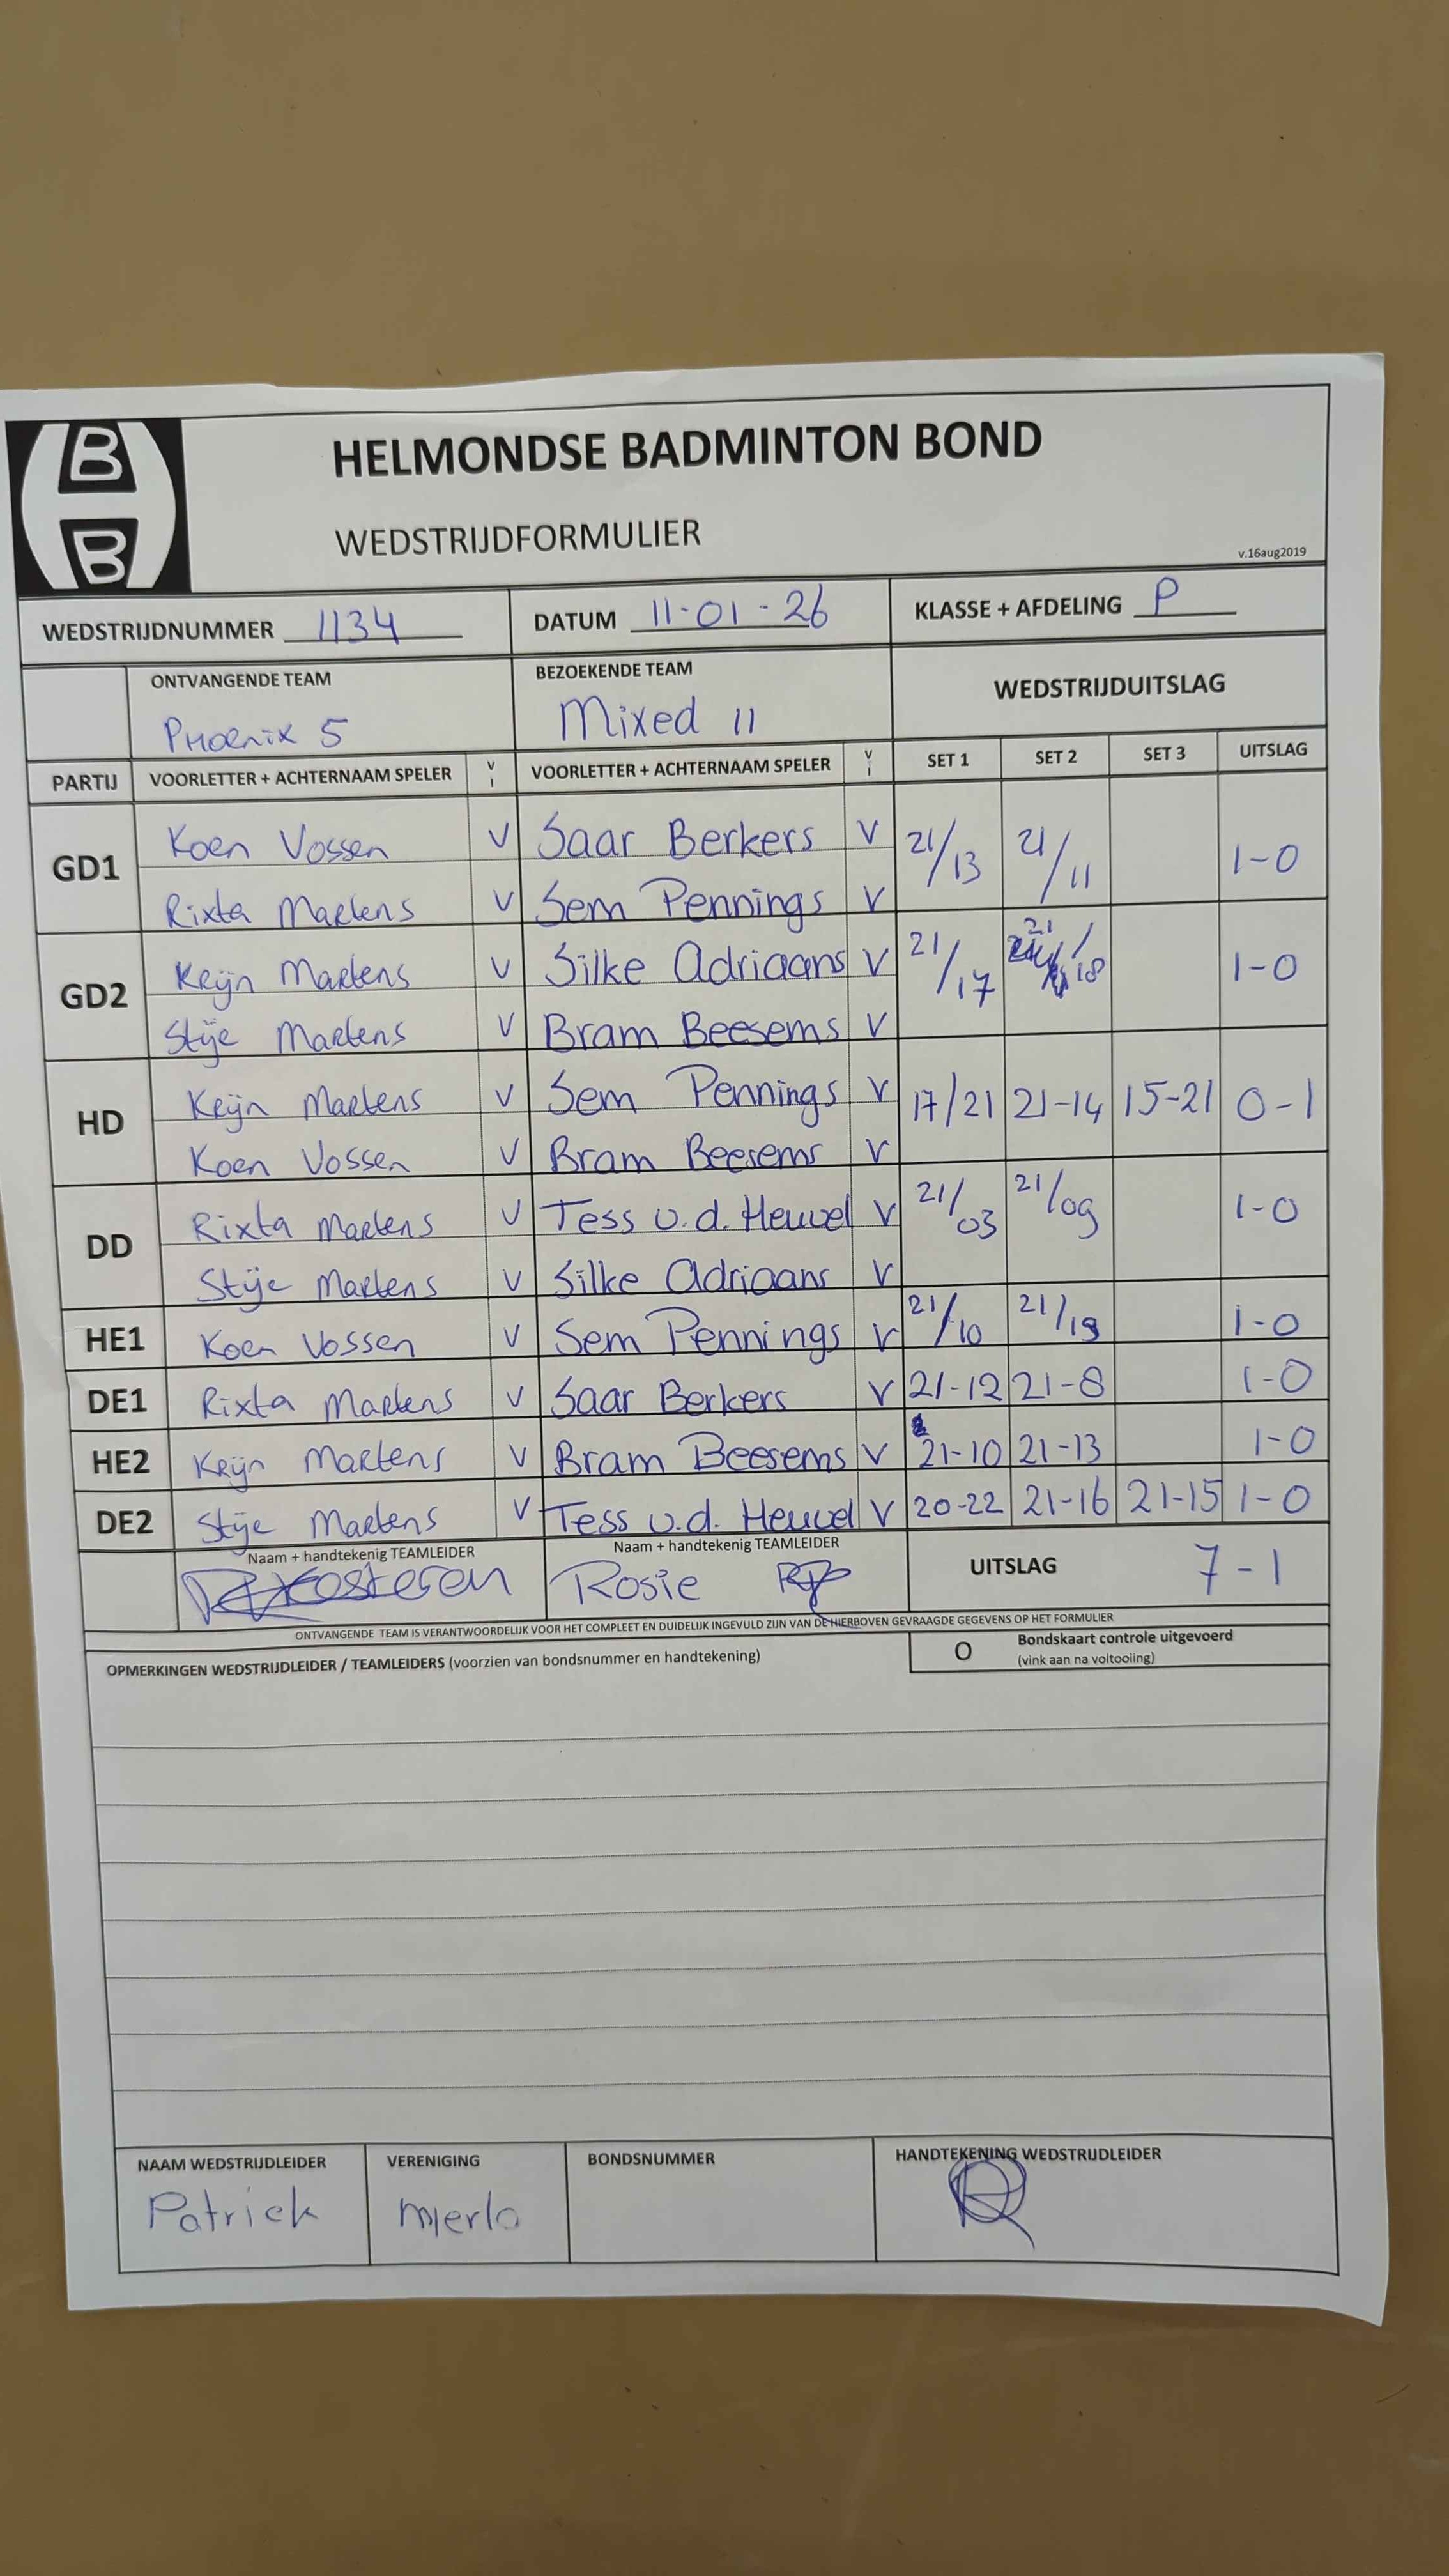 B
B
HELMONDSE BADMINTON BOND
WEDSTRIJDFORMULIER
v.16aug2019
WEDSTRIJDNUMMER 1134 DATUM 11-01-26 KLASSE + AFDELING P
ONTVANGENDE TEAM BEZOEKENDE TEAM WEDSTRIJDUITSLAG
Phoenix 5 Mixed 11
PARTIJ VOORLETTER + ACHTERNAAM SPELER V I VOORLETTER + ACHTERNAAM SPELER V I SET 1 SET 2 SET 3 UITSLAG
GD1 Koen Vossen V Saar Berkers V 21/13 21/11 1-0
Rixta Martens V Sem Pennings V
GD2 Krijn Martens V Silke Adriaans V 21/17 21/18 1-0
Stije Martens V Bram Beesems V
HD Krijn Martens V Sem Pennings V 17/21 21-14 15-21 0-1
Koen Vossen V Bram Beesems V
DD Rixta Martens V Tess v.d. Heuvel V 21/03 21/09 1-0
Stije Martens V Silke Adriaans V
HE1 Koen Vossen V Sem Pennings V 21/10 21/19 1-0
DE1 Rixta Martens V Saar Berkers V 21-12 21-8 1-0
HE2 Krijn Martens V Bram Beesems V 21-10 21-13 1-0
DE2 Stije Martens V Tess v.d. Heuvel V 20-22 21-16 21-15 1-0
Naam + handtekenig TEAMLEIDER Naam + handtekenig TEAMLEIDER UITSLAG 7-1
Rosie
ONTVANGENDE TEAM IS VERANTWOORDELIJK VOOR HET COMPLEET EN DUIDELIJK INGEVULD ZIJN VAN DE HIERBOVEN GEVRAAGDE GEGEVENS OP HET FORMULIER
OPMERKINGEN WEDSTRIJDLEIDER / TEAMLEIDERS (voorzien van bondsnummer en handtekening) O Bondskaart controle uitgevoerd
(vink aan na voltooiing)
NAAM WEDSTRIJDLEIDER VERENIGING BONDSNUMMER HANDTEKENING WEDSTRIJDLEIDER
Patrick Mierlo